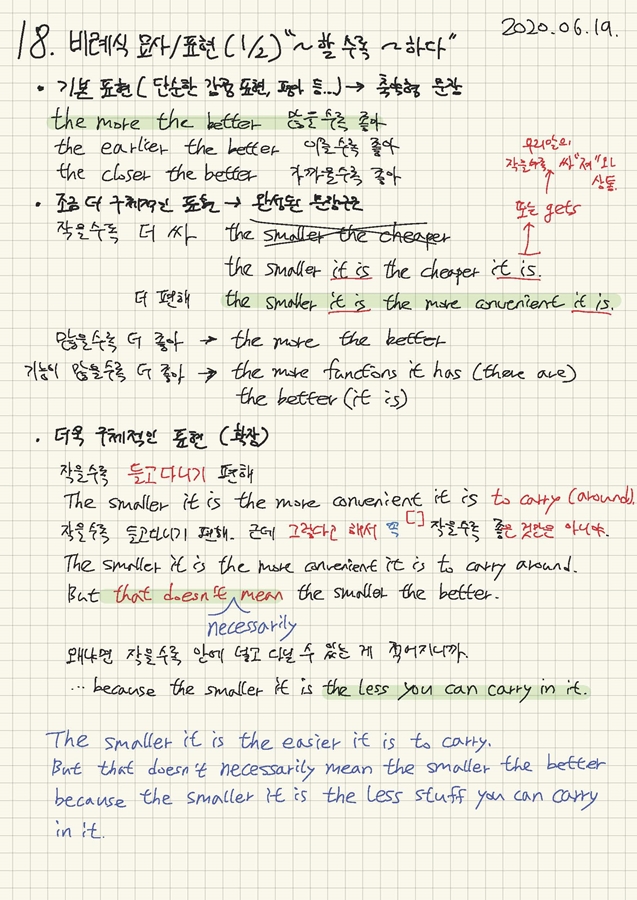 18. 비례식 묘사/표현 (1/2) "~할수록 ~하다"
2020.06.19.
• 기본 표현 (단순한 감정 표현, 평가 등...) → 축약형 문장
the more the better 많을수록 좋아
the earlier the better 이를수록 좋아
the closer the better 가까울수록 좋아
우리말의
작을수록 싸"져"와
상통.
또는 gets
• 조금 더 구체적인 표현 → 완성된 문장구조
작을수록 더 싸 the smaller the cheaper
the smaller it is the cheaper it is.
더 편해 the smaller it is the more convenient it is.
많을수록 더 좋아 → the more the better
기능이 많을수록 더 좋아 → the more functions it has (there are)
the better (it is)
• 더욱 구체적인 표현 (확장)
작을수록 들고다니기 편해
The smaller it is the more convenient it is to carry (around).
작을수록 들고다니기 편해. 근데 그렇다고 해서 꼭 [ ] 작을수록 좋은 것만은 아니야.
The smaller it is the more convenient it is to carry around.
But that doesn't mean the smaller the better.
necessarily
왜냐면 작을수록 안에 넣고 다닐 수 있는 게 적어지니까.
... because the smaller it is the less you can carry in it.
The smaller it is the easier it is to carry.
But that doesn't necessarily mean the smaller the better
because the smaller it is the less stuff you can carry
in it.